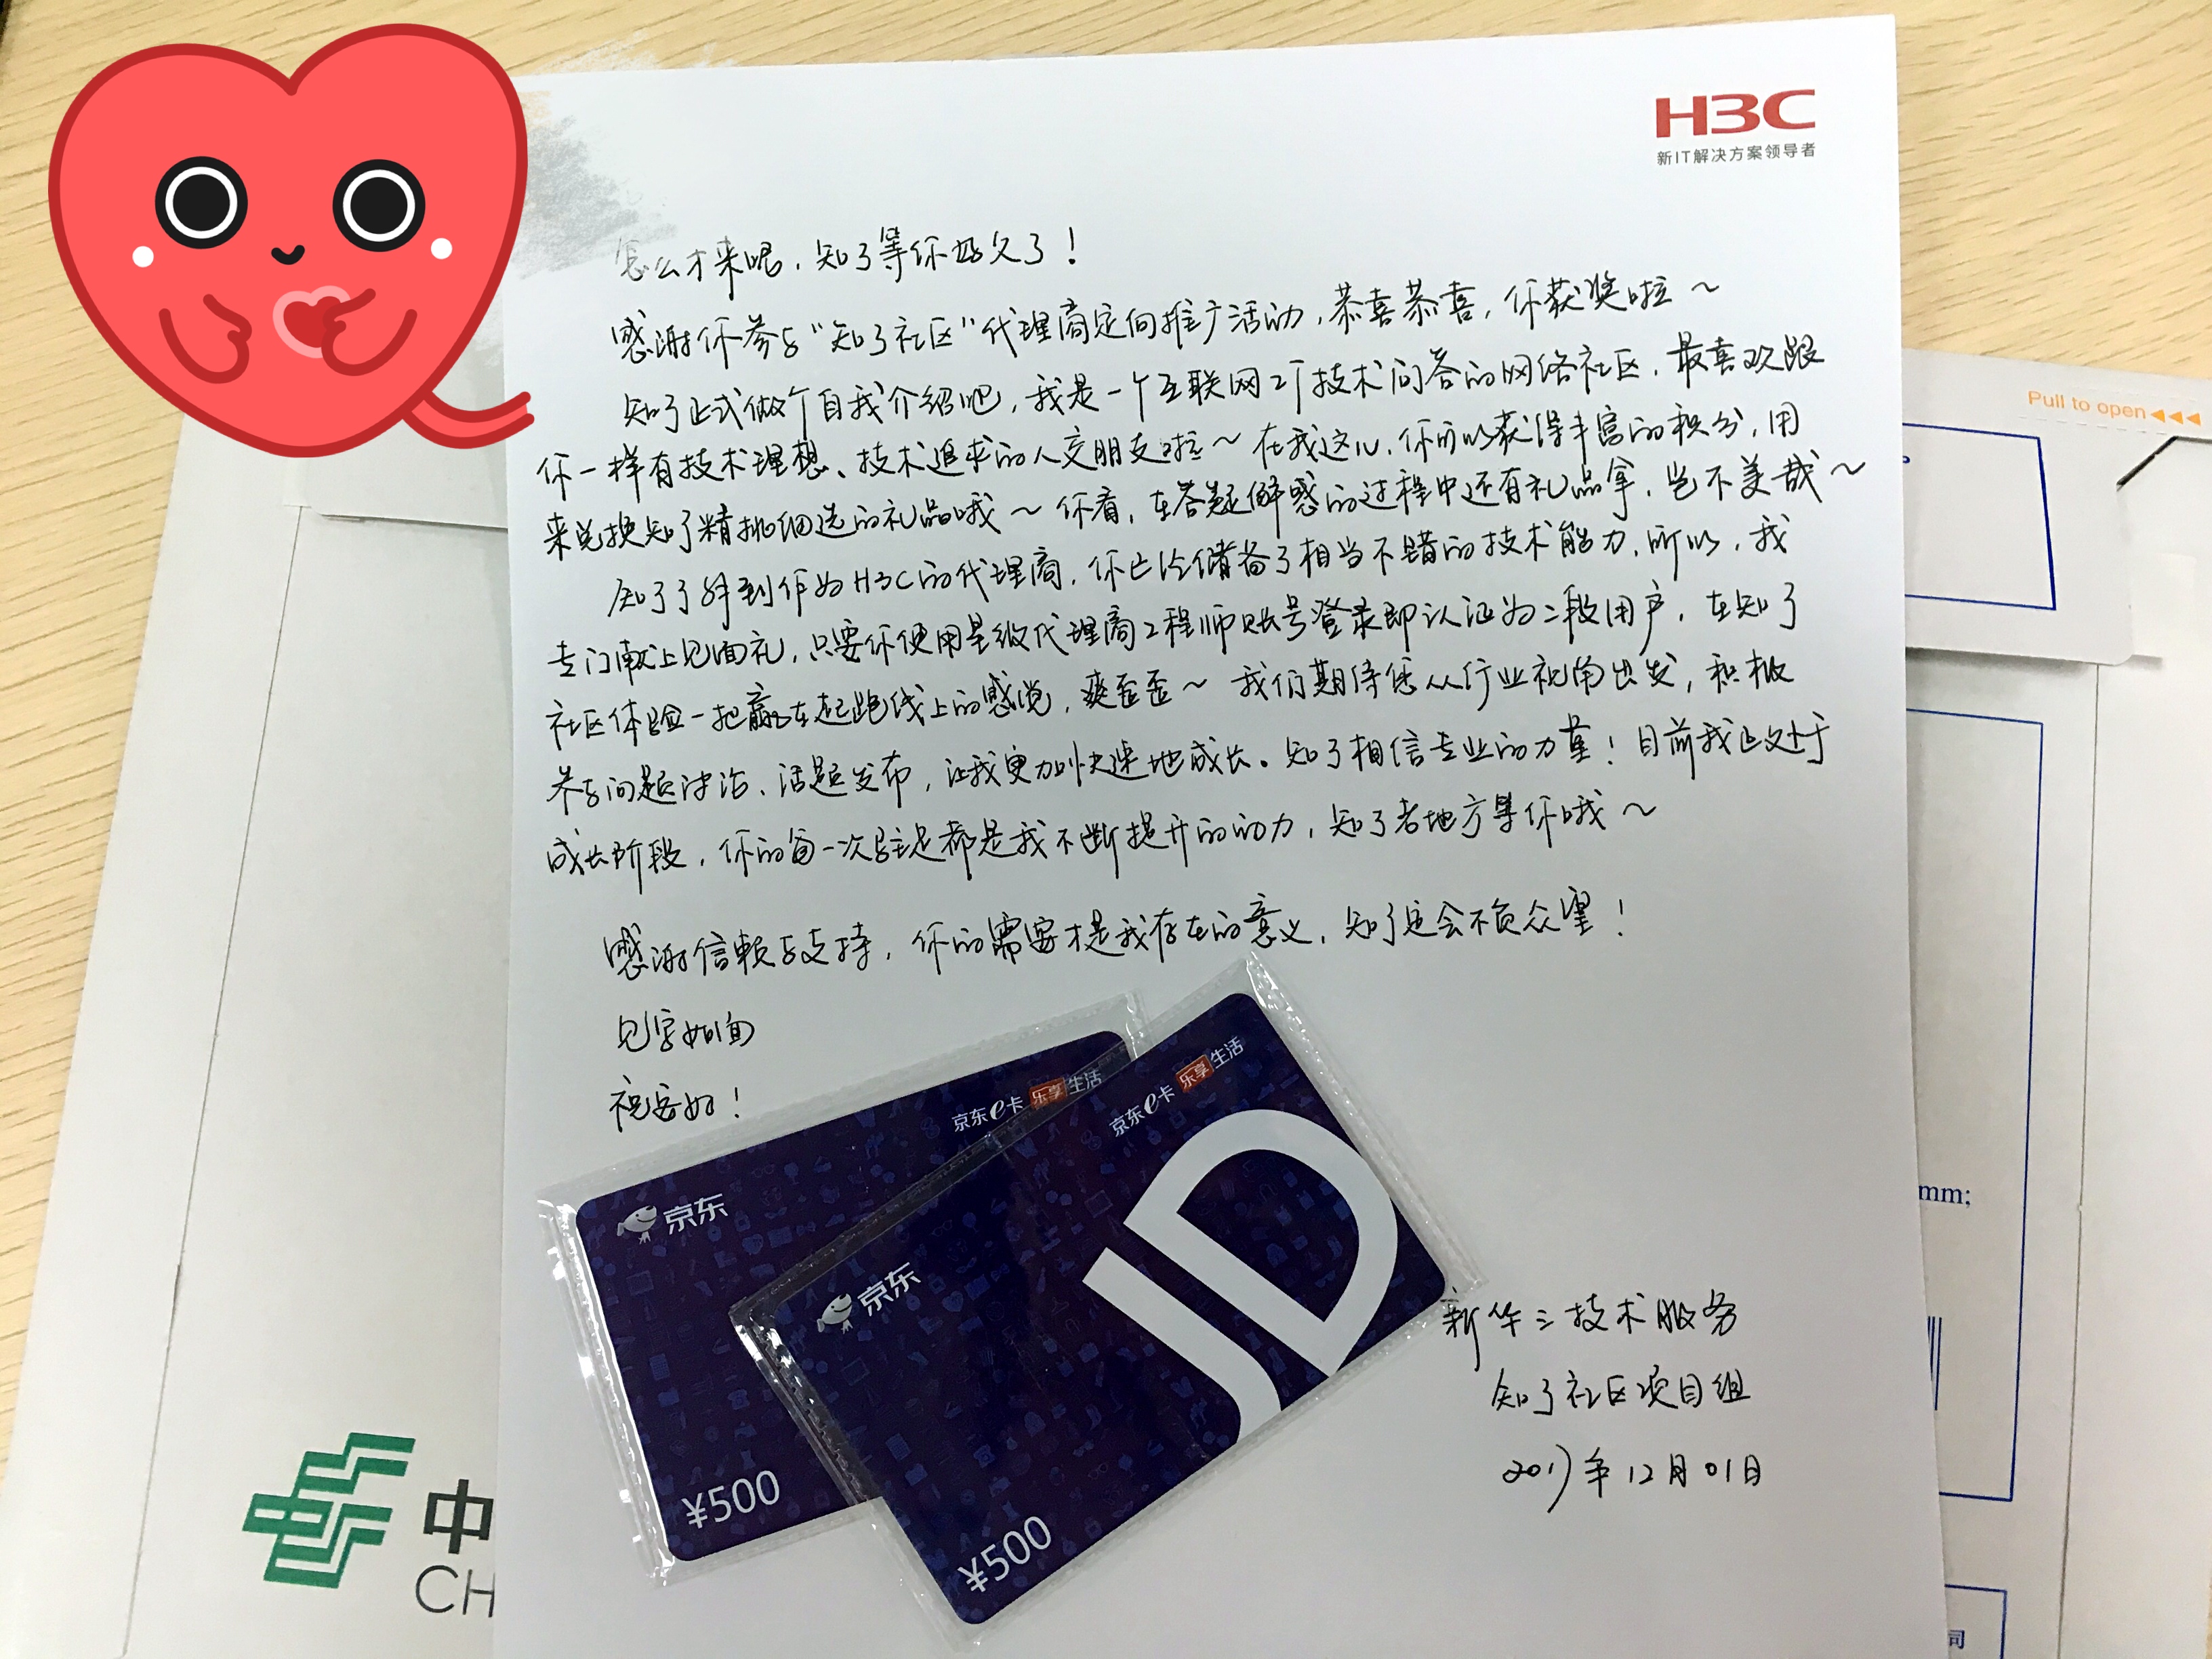 H3C
新IT解决方案领导者
怎么才来呢，知了等你好久了！
感谢你参与“知了社区”代理商定向推广活动，恭喜恭喜，你获奖啦～
知了正式做个自我介绍吧，我是一个互联网工厂技术问答的网络社区，最喜欢跟
你一样有技术理想、技术追求的人交朋友啦～在我这儿，你可以获得丰富的积分，用
来兑换知了精挑细选的礼品哦～你看，在答疑解惑的过程中还有礼品拿，岂不美哉～
知了了解到作为H3C的代理商，你已经储备了相当不错的技术能力，所以，我
专门献上见面礼，只要你使用星级代理商工程师账号登录即认证为二段用户，在知了
社区体验一把赢在起跑线上的感觉，爽歪歪～我们期待您从行业视角出发，积极
参与问题讨论、话题发布，让我更加快速地成长。知了相信专业的力量！目前我正处于
成长阶段，你的每一次驻足都是我不断提升的动力，知了老地方等你哦～
感谢信赖与支持，你的需要才是我存在的意义，知了定会不负众望！
见字如面
祝安好！
京东e卡 乐享生活
京东e卡 乐享生活
京东
京东
JD
¥500
¥500
新华三技术服务
知了社区项目组
2017年12月01日
Pull to open
mm;
司
中
CH